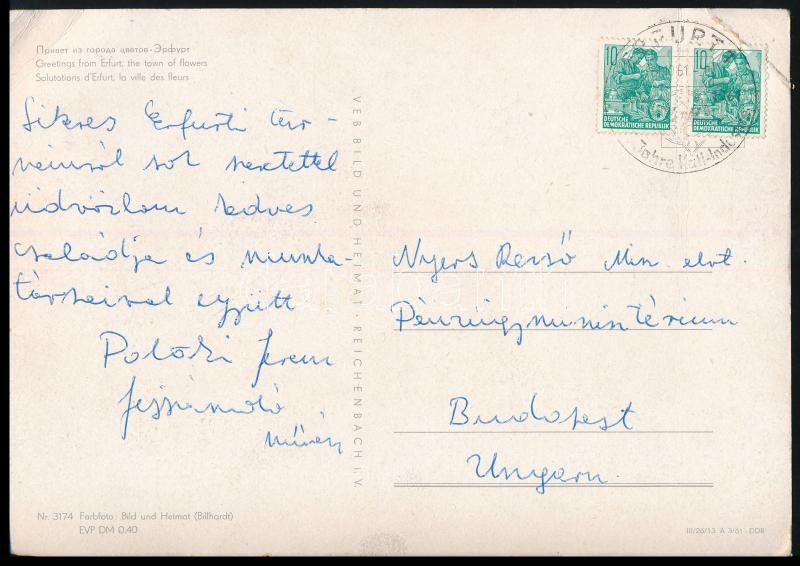 Привет из города цветов · Эрфурт
Greetings from Erfurt, the town of flowers
Salutations d'Erfurt, la ville des fleurs
Sikeres Erfurti tur-
néimról sok szeretettel
üdvözlöm kedves
családja és munka-
társaival együtt
Polocki Ferenc
fejszámoló
művész
Nr. 3174 Farbfoto: Bild und Heimat (Billhardt)
EVP DM 0,40
VEB BILD UND HEIMAT · REICHENBACH i. V.
ERFURT
61
Jahre Kali-Indu
10
DEUTSCHE
DEMOKRATISCHE REPUBLIK
10
DEUTSCHE
DEMOKRATISCHE REPUBLIK
Nyers Rezső Min. elvt.
Pénzügyminisztérium
Budapest
Ungarn.
III/26/13 A 3/61 - DDR